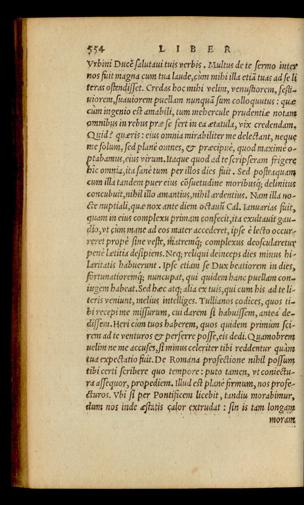 554 LIBER
Vrbini Ducē salutaui tuis verbis. Multus de te sermo inter
nos fuit magna cum tua laude, cùm mihi illa etiā tuas ad se li
teras ostendisset. Credas hoc mihi velim, venustiorem, festi-
uiorem, suauiorem puellam nunquā sum colloquutus: quæ
cùm ingenio est amabili, tum mehercule prudentiæ notam
omnibus in rebus præ se fert in ea ætatula, vix credendam.
Quid? quæris: eius omnia mirabiliter me delectant, neque
me solum, sed planè omnes, & præcipuè, quod maximè o-
ptabamus, eius virum. Itaque quod ad te scripseram frigere
hîc omnia, ita sanè tum per illos dies fuit. Sed postquam
cum illa tandem puer eius cōsuetudine moribusq; delinitus
concubuit, nihil illo amantius, nihil ardentius. Nam illa no-
cte nuptiali, quæ nox ante diem octauū Cal. Ianuarias fuit,
quam in eius complexu primam confecit, ita exultauit gau-
dio, vt cùm mane ad eos mater accederet, ipse è lecto occur-
reret propè sine veste, matremq; complexus deoscularetur
penè lætitia desipiens. Neq; reliqui deinceps dies minus hi-
laritatis habuerunt. Ipse etiam se Dux beatiorem in dies,
fortunatioremq; nuncupat, qui quidem hanc puellam con-
iugem habeat. Sed hæc atq; alia ex tuis, qui cum his ad te li-
teris veniunt, melius intelliges. Tullianos codices, quos ti-
bi recepi me missurum, cui darem si habuissem, antea de-
dissem. Heri cùm tuos haberem, quos quidem primùm sci-
rem ad te venturos & perferre posse, eis dedi. Quamobrem
velim ne me accuses, si minus celeriter tibi reddentur quàm
tua expectatio fuit. De Romana profectione nihil possum
tibi certi scribere quo tempore: puto tamen, vt coniectu-
ra assequor, propediem. Illud est planè firmum, nos profe-
cturos. Vbi si per Pontificem licebit, tandiu morabimur,
dum nos inde æstatis calor extrudat: sin is tam longam
moram